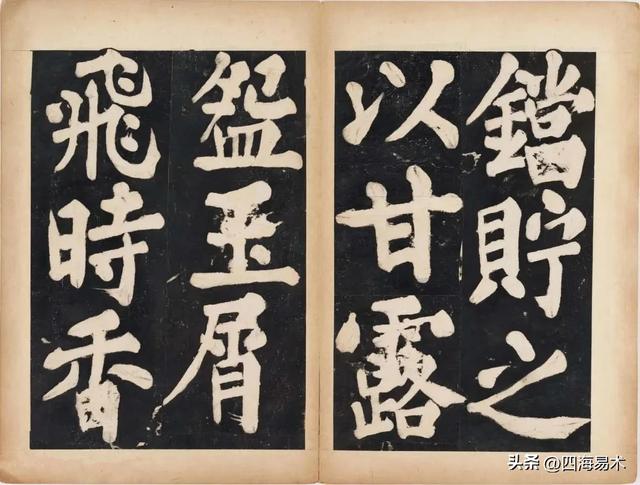 鐺貯之
以甘露
盌玉屑
飛時香
头条 @四海易木